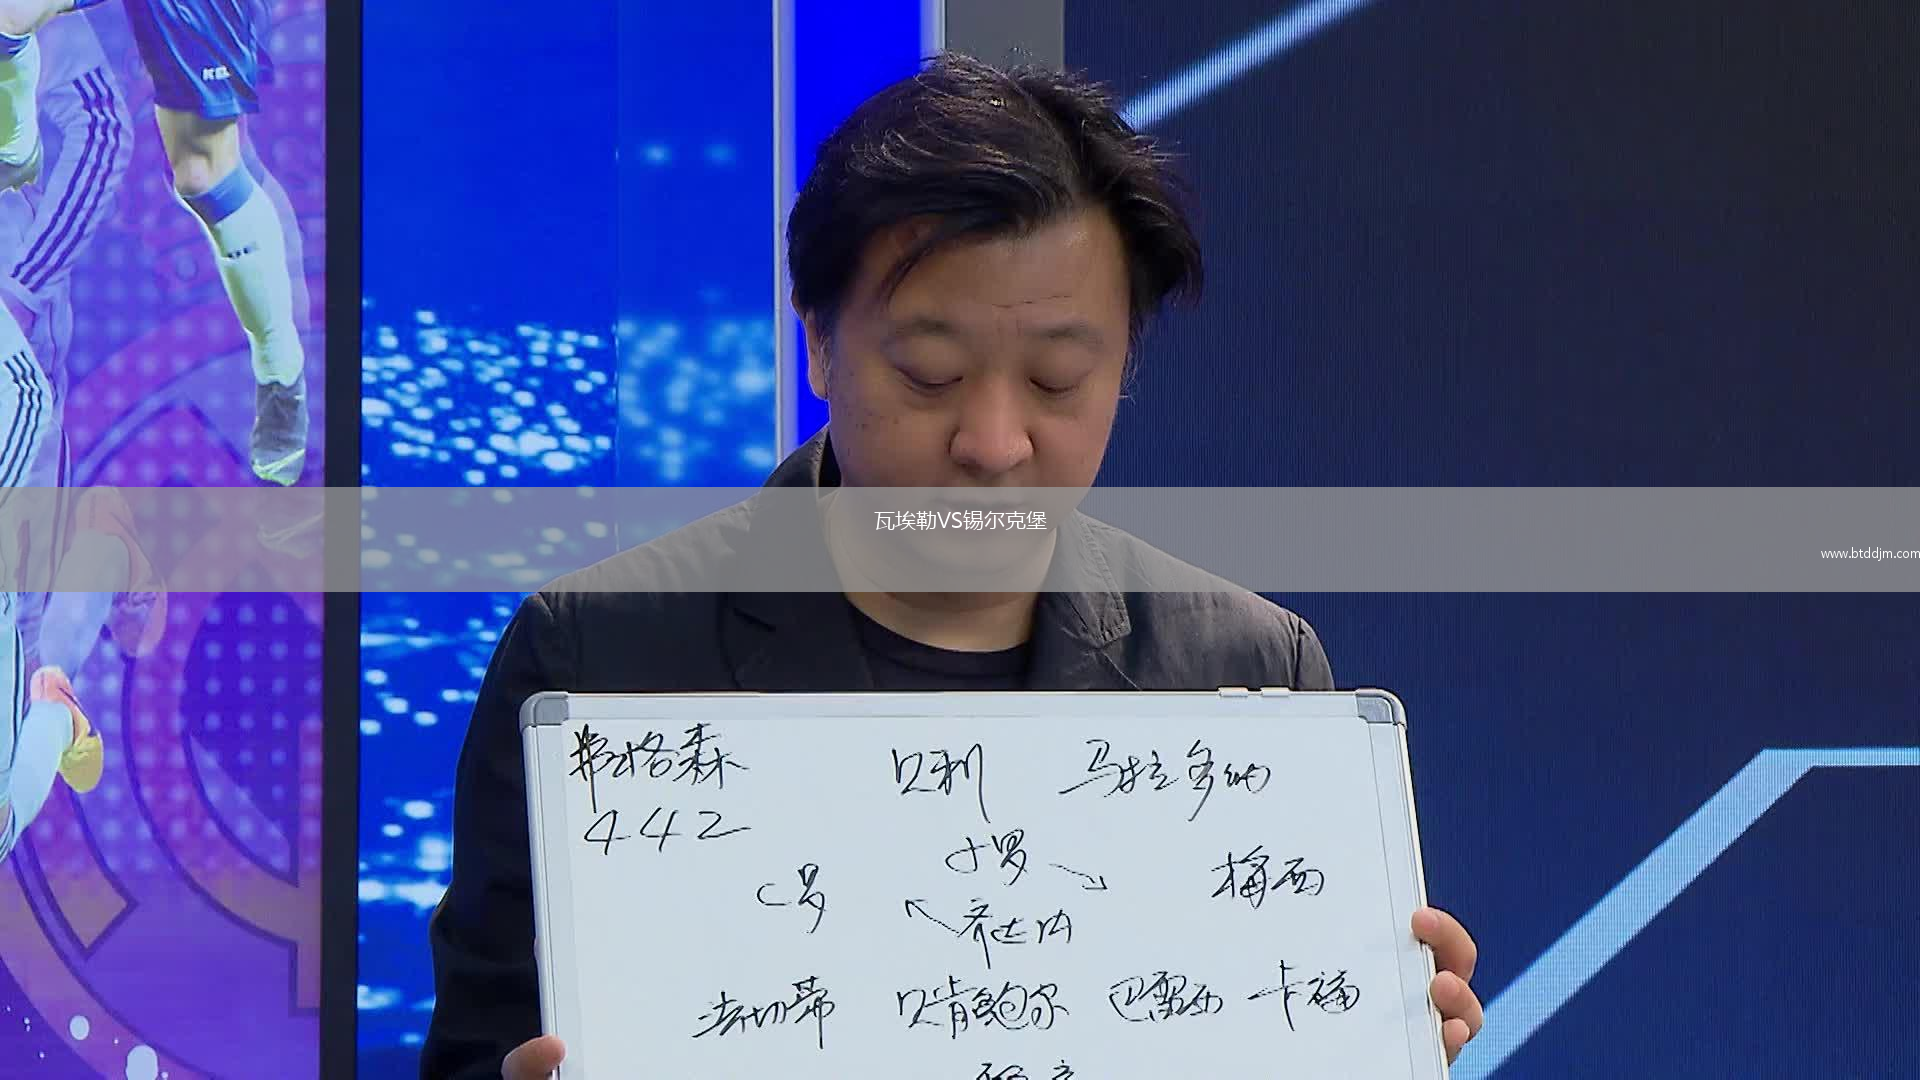 瓦埃勒VS锡尔克堡
www.btddjm.com
弗格森 贝利 马拉多纳
442
小罗
C罗 梅西
齐达内
法切蒂 贝肯鲍尔 巴雷西 卡福